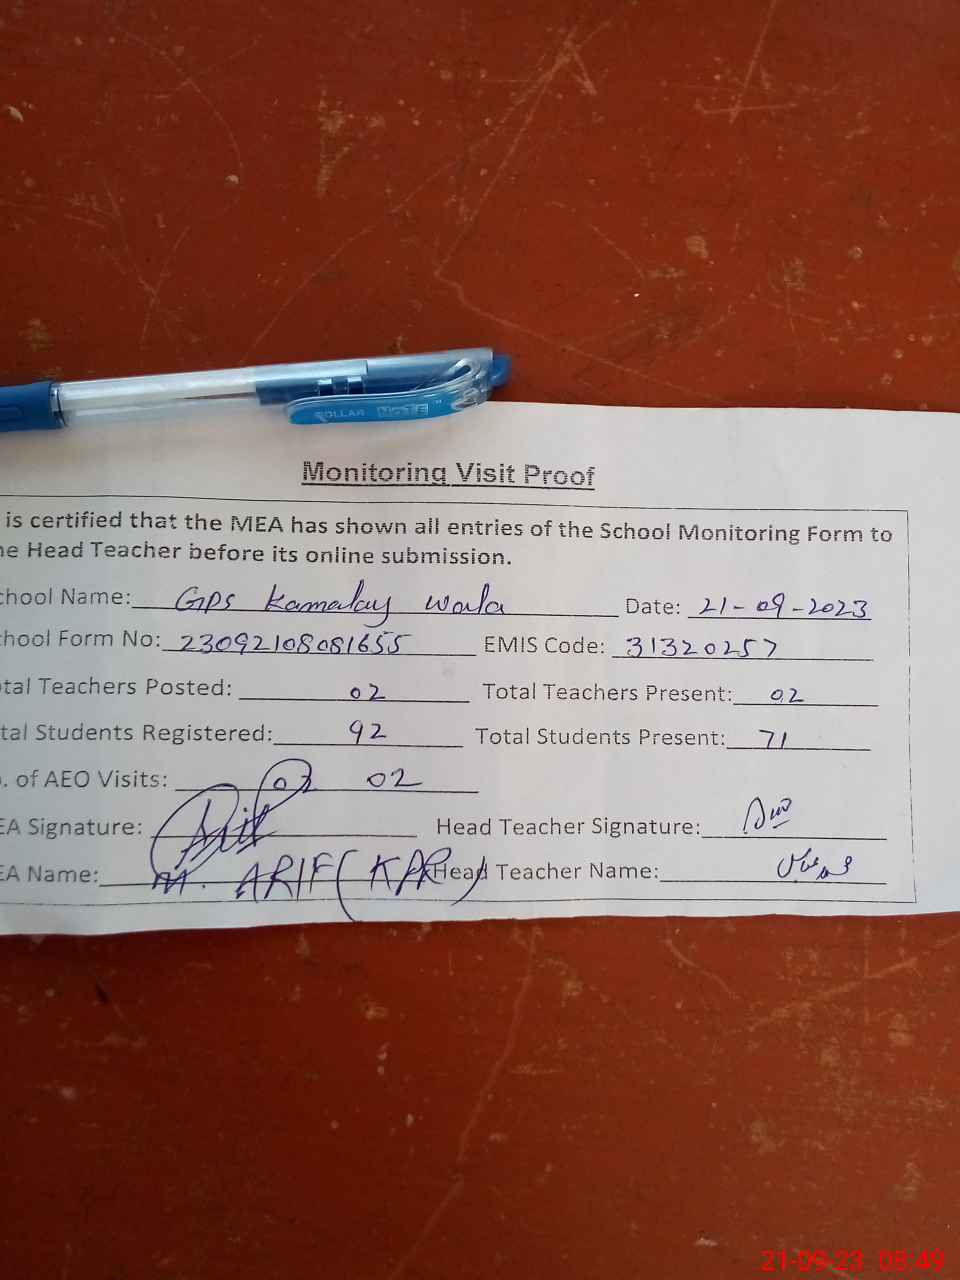 DOLLAR NOTE
Monitoring Visit Proof
is certified that the MEA has shown all entries of the School Monitoring Form to
he Head Teacher before its online submission.
chool Name: GPS Kamalay wala Date: 21-09-2023
chool Form No: 23092108081655 EMIS Code: 31320257
otal Teachers Posted: 02 Total Teachers Present: 02
tal Students Registered: 92 Total Students Present: 71
. of AEO Visits: 02 02
EA Signature: Head Teacher Signature:
EA Name: M. ARIF (KPR) Head Teacher Name:
21-09-23 08:49